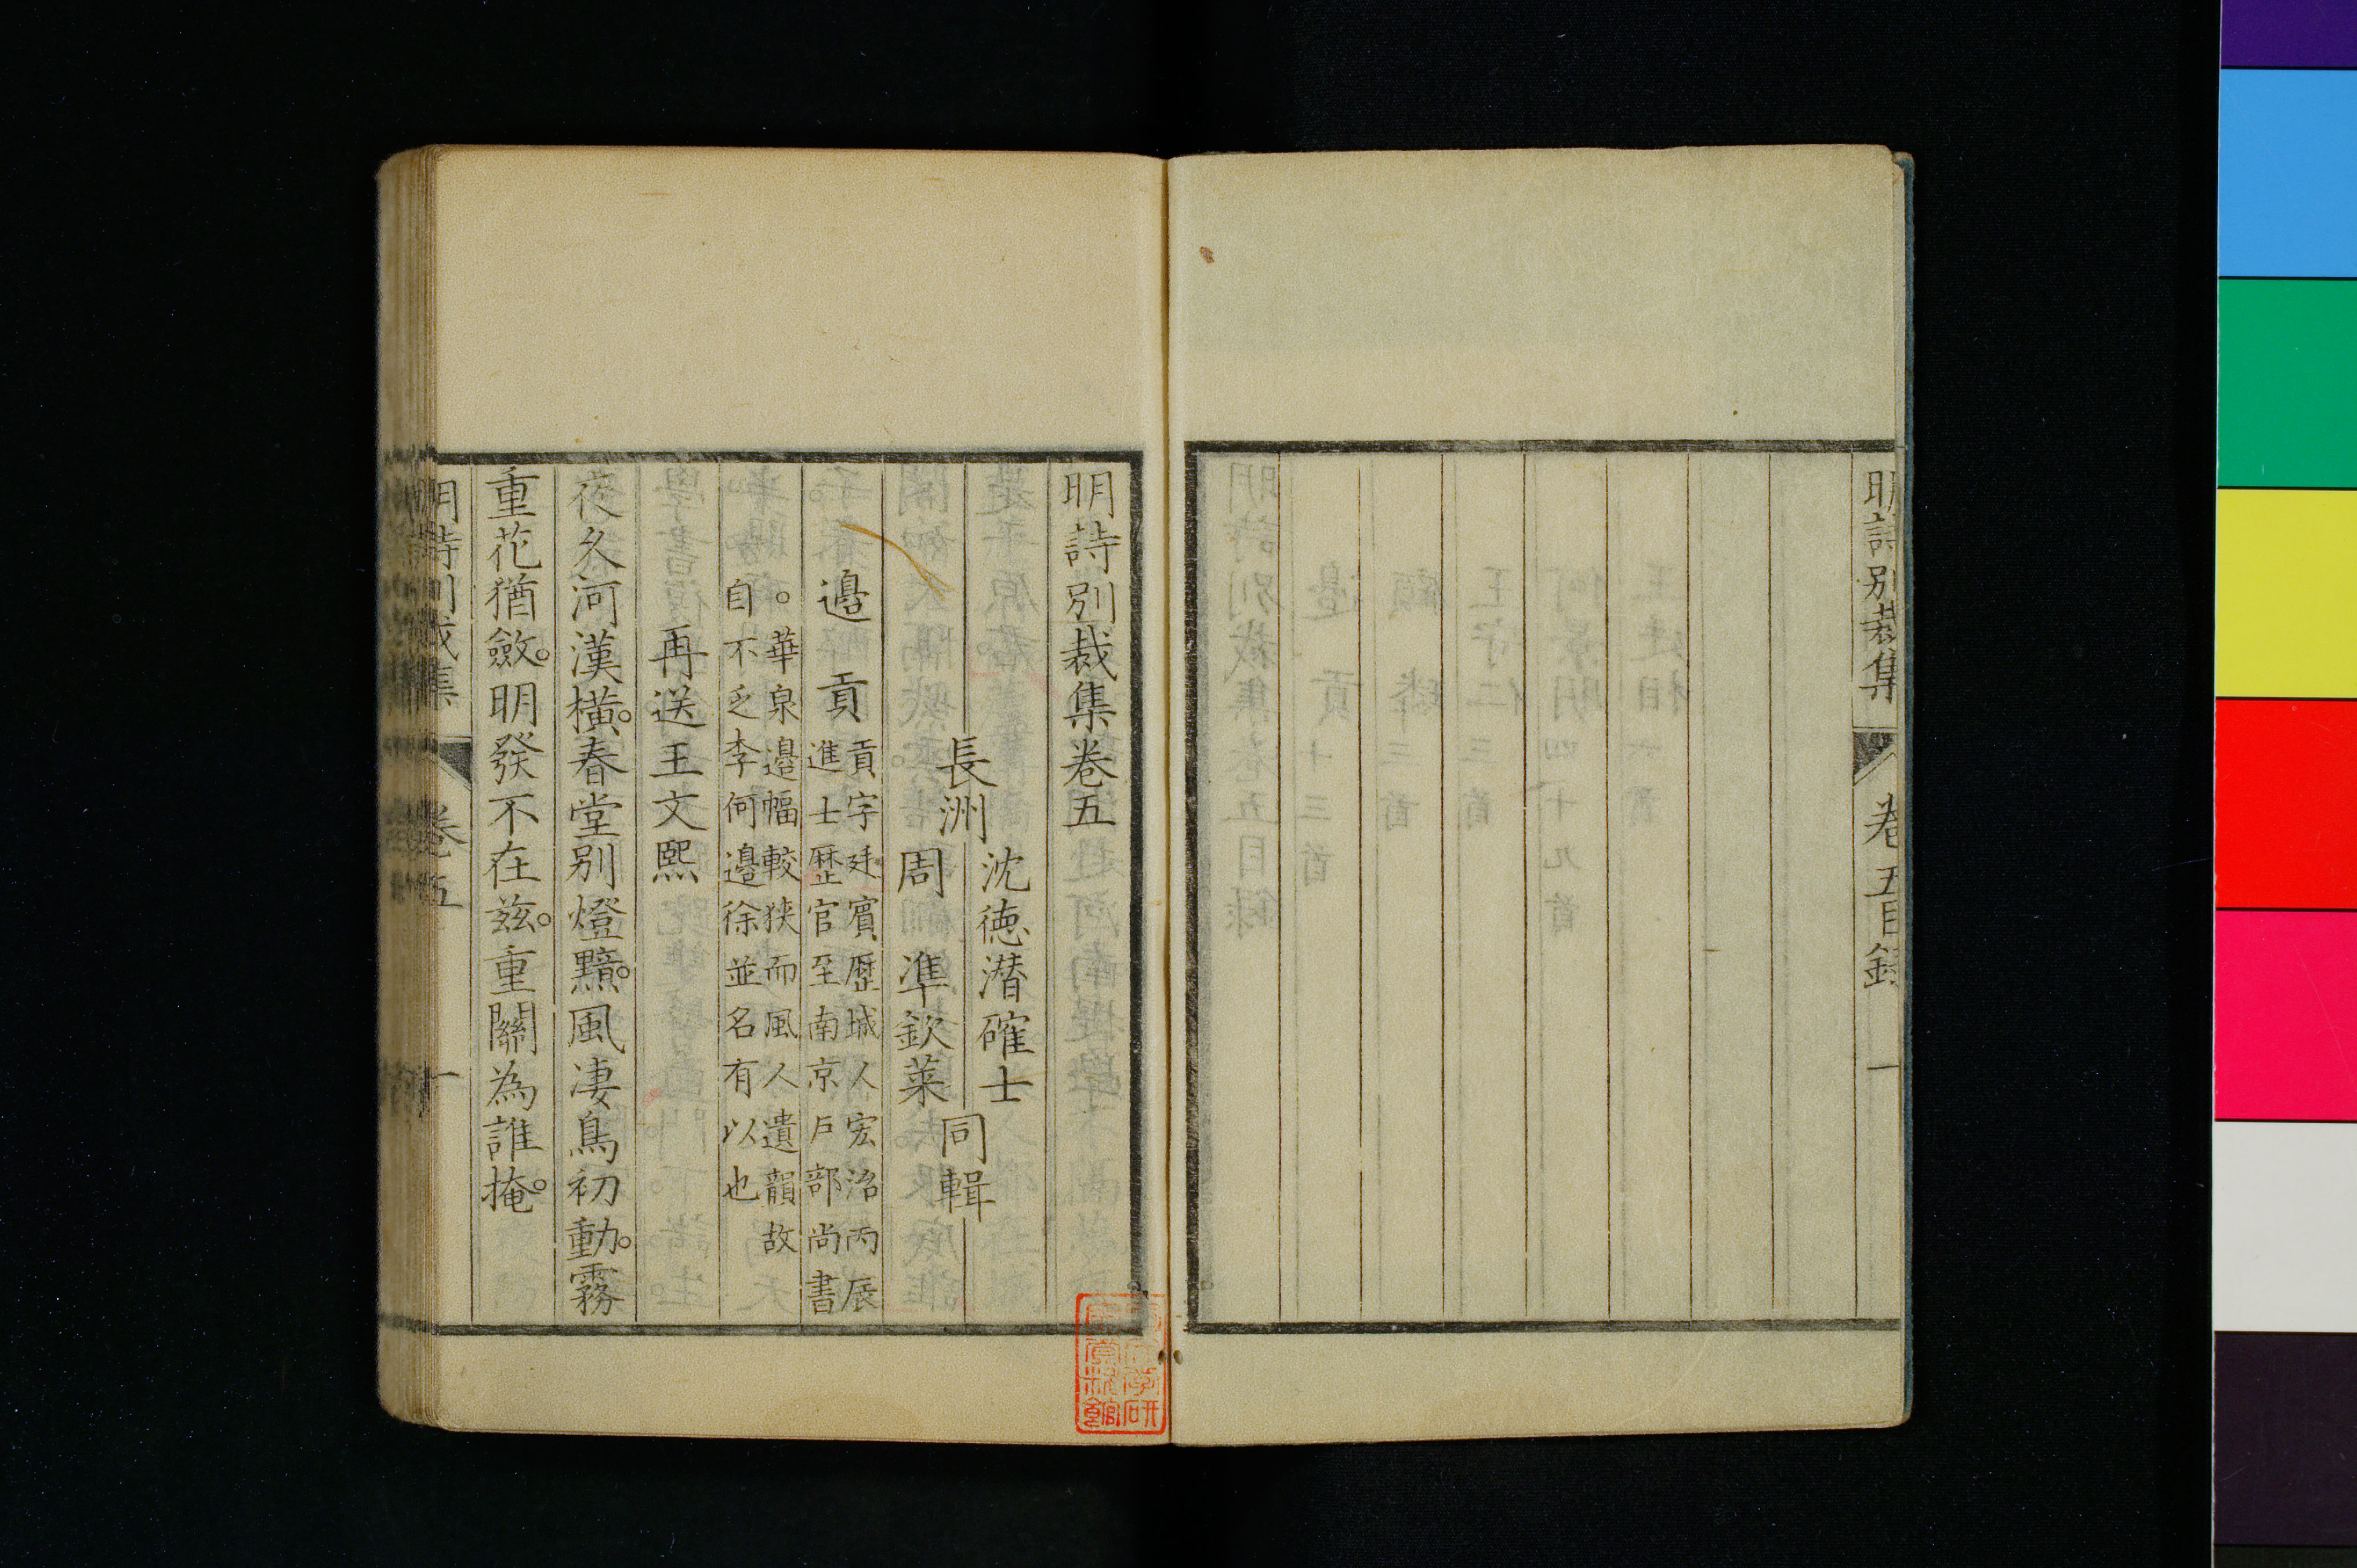 明詩別裁集
卷五目錄
一
明詩別裁集卷五
長洲
沈德潛確士
周準欽萊
同輯
邊貢
貢字廷賓歷城人宏治丙辰
進士歷官至南京戶部尚書
。華泉邊幅較狹而風人遺韻故
自不乏李何邊徐並名有以也
再送王文熙
夜久河漢橫。春堂別燈黯。風凄鳥初動。霧
重花猶斂。明發不在茲。重關為誰掩。
明詩別裁集
卷五
一